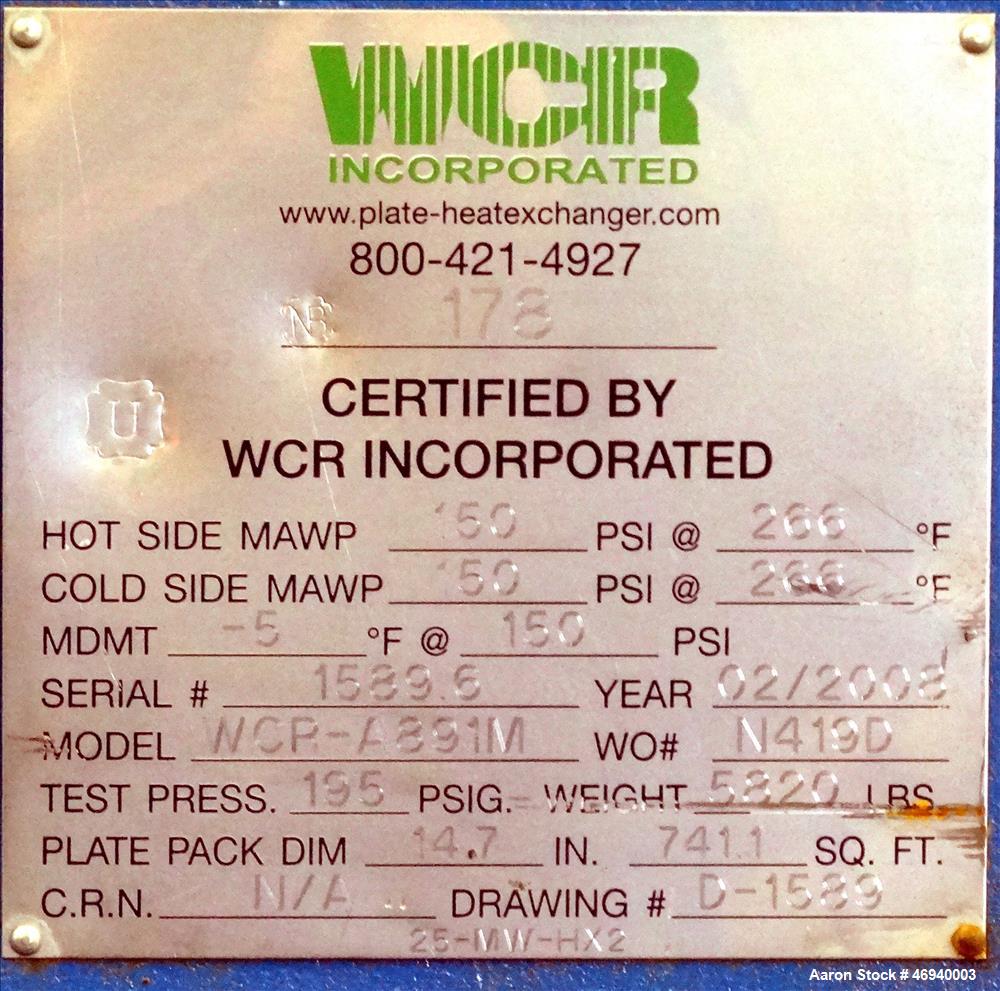 WCR
INCORPORATED
www.plate-heatexchanger.com
800-421-4927
NB 178
U
CERTIFIED BY
WCR INCORPORATED
HOT SIDE MAWP 150 PSI @ 266 °F
COLD SIDE MAWP 150 PSI @ 266 °F
MDMT -5 °F @ 150 PSI
SERIAL # 1589.6 YEAR 02/2008
MODEL WCR-A891M WO# N419D
TEST PRESS. 195 PSIG. WEIGHT 5820 LBS.
PLATE PACK DIM 14.7 IN. 741.1 SQ. FT.
C.R.N. N/A DRAWING # D-1589
25-MW-HX2
Aaron Stock # 46940003